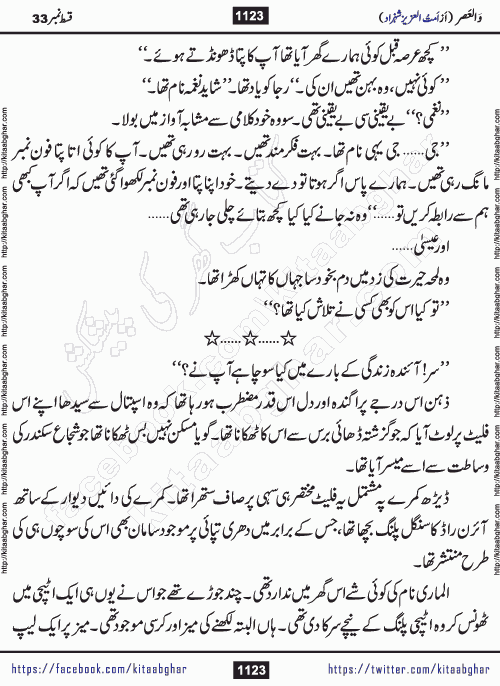 وَالعَصر (از اَمتُ العزیز شہزاد)
1123
قسط نمبر 33
’’کچھ عرصہ قبل کوئی ہمارے گھر آیا تھا آپ کا پتا ڈھونڈتے ہوئے۔‘‘
’’کوئی نہیں، وہ بہن تھیں ان کی۔‘‘ رجا کو یاد تھا۔ ’’شاید نغمہ نام تھا۔‘‘
’’نغمی؟‘‘ بے یقینی سی بے یقینی تھی۔ سو وہ خود کلامی سے مشابہ آواز میں بولا۔
’’جی...... جی یہی نام تھا۔ بہت فکر مند تھیں۔ بہت رو رہی تھیں۔ آپ کا کوئی اتا پتا فون نمبر
مانگ رہی تھیں۔ ہمارے پاس اگر ہوتا تو دے دیتے۔ خود اپنا پتا اور فون نمبر لکھوا گئی تھیں کہ اگر آپ کبھی
ہم سے رابطہ کریں تو......‘‘ وہ نہ جانے کیا کیا کچھ بتائے چلی جا رہی تھی......
اور عیسیٰ......
وہ لمحہ حیرت کی زد میں دم بخود سا جہاں کا تہاں کھڑا تھا۔
’’تو کیا اس کو بھی کسی نے تلاش کیا تھا؟‘‘
☆......☆......☆
’’سر! آئندہ زندگی کے بارے میں کیا سوچا ہے آپ نے؟‘‘
ذہن اس درجے پراگندہ اور دل اس قدر مضطرب ہو رہا تھا کہ وہ اسپتال سے سیدھا اپنے اس
فلیٹ پر لوٹ آیا کہ جو گزشتہ ڈھائی برس سے اس کا ٹھکانا تھا۔ گویا مسکن نہیں بس ٹھکانا تھا جو شجاع سکندر کی
وساطت سے اسے میسر آیا تھا۔
ڈیڑھ کمرے پہ مشتمل یہ فلیٹ مختصر ہی سہی پر صاف ستھرا تھا۔ کمرے کی دائیں دیوار کے ساتھ
آئرن راڈ کا سنگل پلنگ بچھا تھا، جس کے برابر میں دھری تپائی پر موجود سامان بھی اس کی سوچوں ہی کی
طرح منتشر تھا۔
الماری نام کی کوئی شے اس گھر میں ندارد تھی۔ چند جوڑے تھے جو اس نے یوں ہی ایک اٹیچی میں
ٹھونس کر وہ اٹیچی پلنگ کے نیچے سرکا دی تھی۔ ہاں البتہ لکھنے کی میز اور کرسی موجود تھی۔ میز پر ایک لیپ
https://facebook.com/kitaabghar
1123
https://twitter.com/kitaabghar
http://kitaabghar.com
http://kitaabghar.com
http://kitaabghar.com
http://kitaabghar.com
http://kitaabghar.com
http://kitaabghar.com
http://kitaabghar.com
http://kitaabghar.com